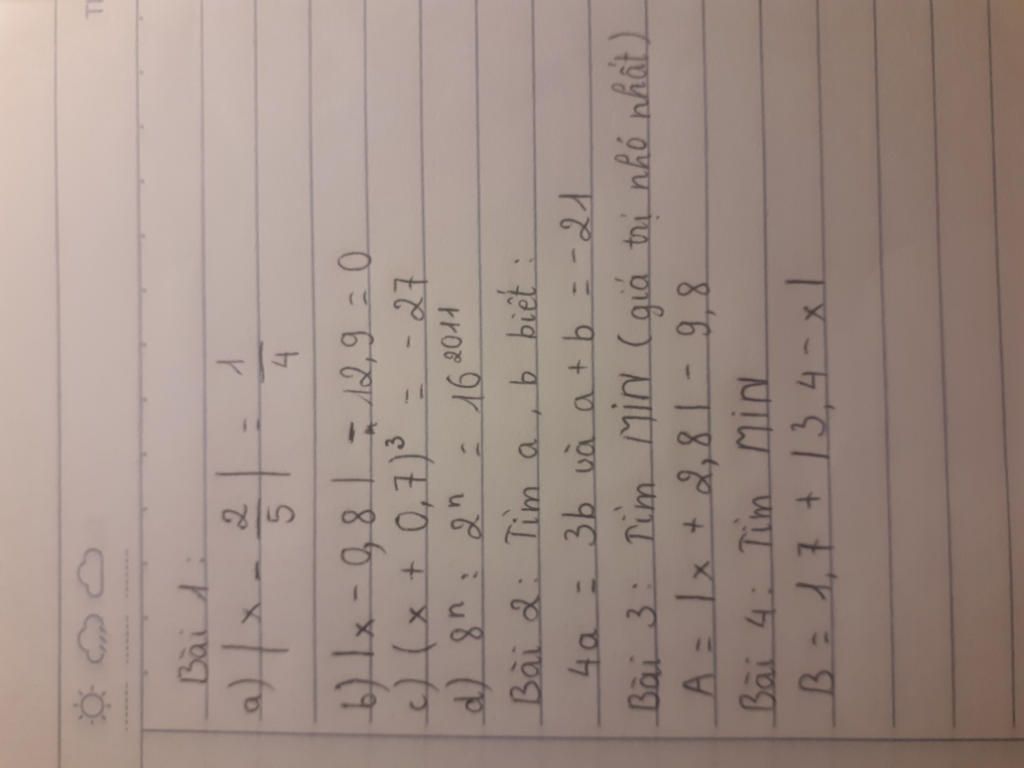 Bài 1:
a) | x - 2/5 | = 1/4
b) | x - 0,8 | - 12,9 = 0
c) (x + 0,7)³ = - 27
d) 8ⁿ : 2ⁿ = 16²⁰¹¹
Bài 2: Tìm a, b biết:
4a = 3b và a + b = - 21
Bài 3: Tìm MIN (giá trị nhỏ nhất)
A = | x + 2,8 | - 9,8
Bài 4: Tìm MIN
B = 1,7 + | 3,4 - x |